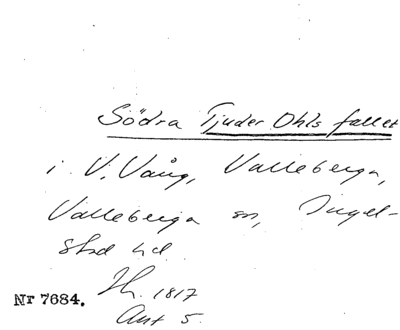 Södra Tjuder Ohls fallet
i V. Vång, Valleberga,
Valleberga sn, Ingel-
stad hd
1817
Nr 7684.
Akt 5.